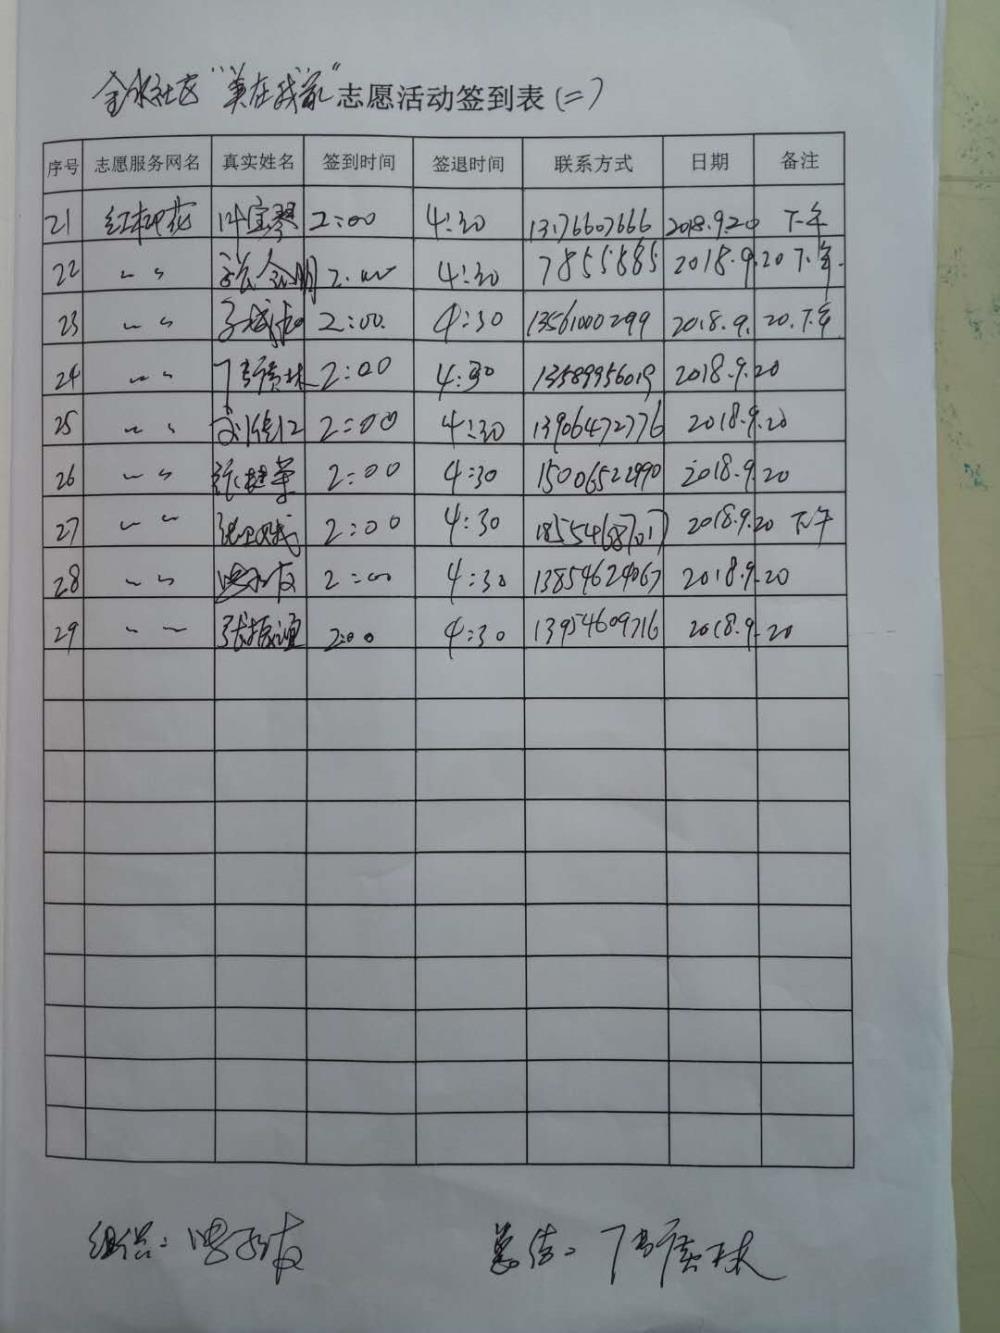 金水社区"美在我家"志愿活动签到表(二)
序号 志愿服务网名 真实姓名 签到时间 签退时间 联系方式 日期 备注
21 红柳花 叶宝琴 2:00 4:30 13176607666 2018.9.20 下午
22 〃 张金明 2:00 4:30 7855885 2018.9.20 下午.
23 〃 2:00. 4:30 13561000299 2018.9.20.下午
24 〃 2:00 4:30 13589956019 2018.9.20
25 〃 2:00 4:30 13906472776 2018.9.20
26 〃 2:00 4:30 15006522990 2018.9.20
27 〃 2:00 4:30 18554687017 2018.9.20 下午
28 〃 2:00 4:30 13854624067 2018.9.20
29 〃 张振谊 2:00 4:30 13954609716 2018.9.20